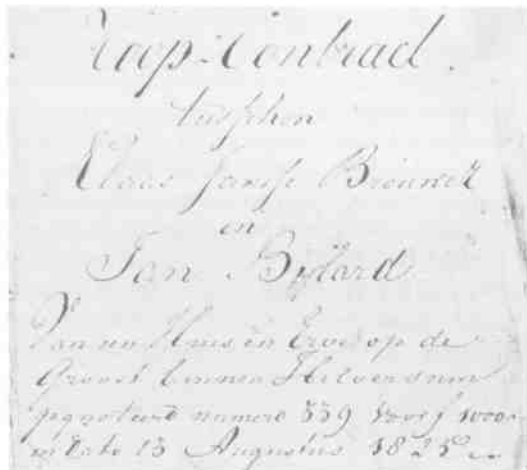 Coop-Contract.
tusschen
Claas Janse Brouwer
en
Jan
Van een Huis en Erve op de
Groest binnen Hilversum
numero 339 voor ƒ 1000-
13 Augustus 1825